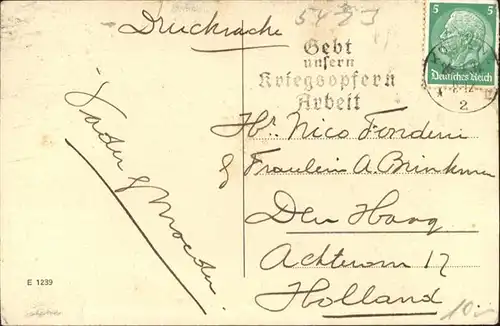 Drucksache
Gebt
unsern
Kriegsopfern
Arbeit
5
5
Deutsches Reich
2
Hr. Nico Fonderie
& Fraulein A. Brinkman
Den Haag
Achterom 17
Holland
Vader & Moeder.
E 1239
10.-